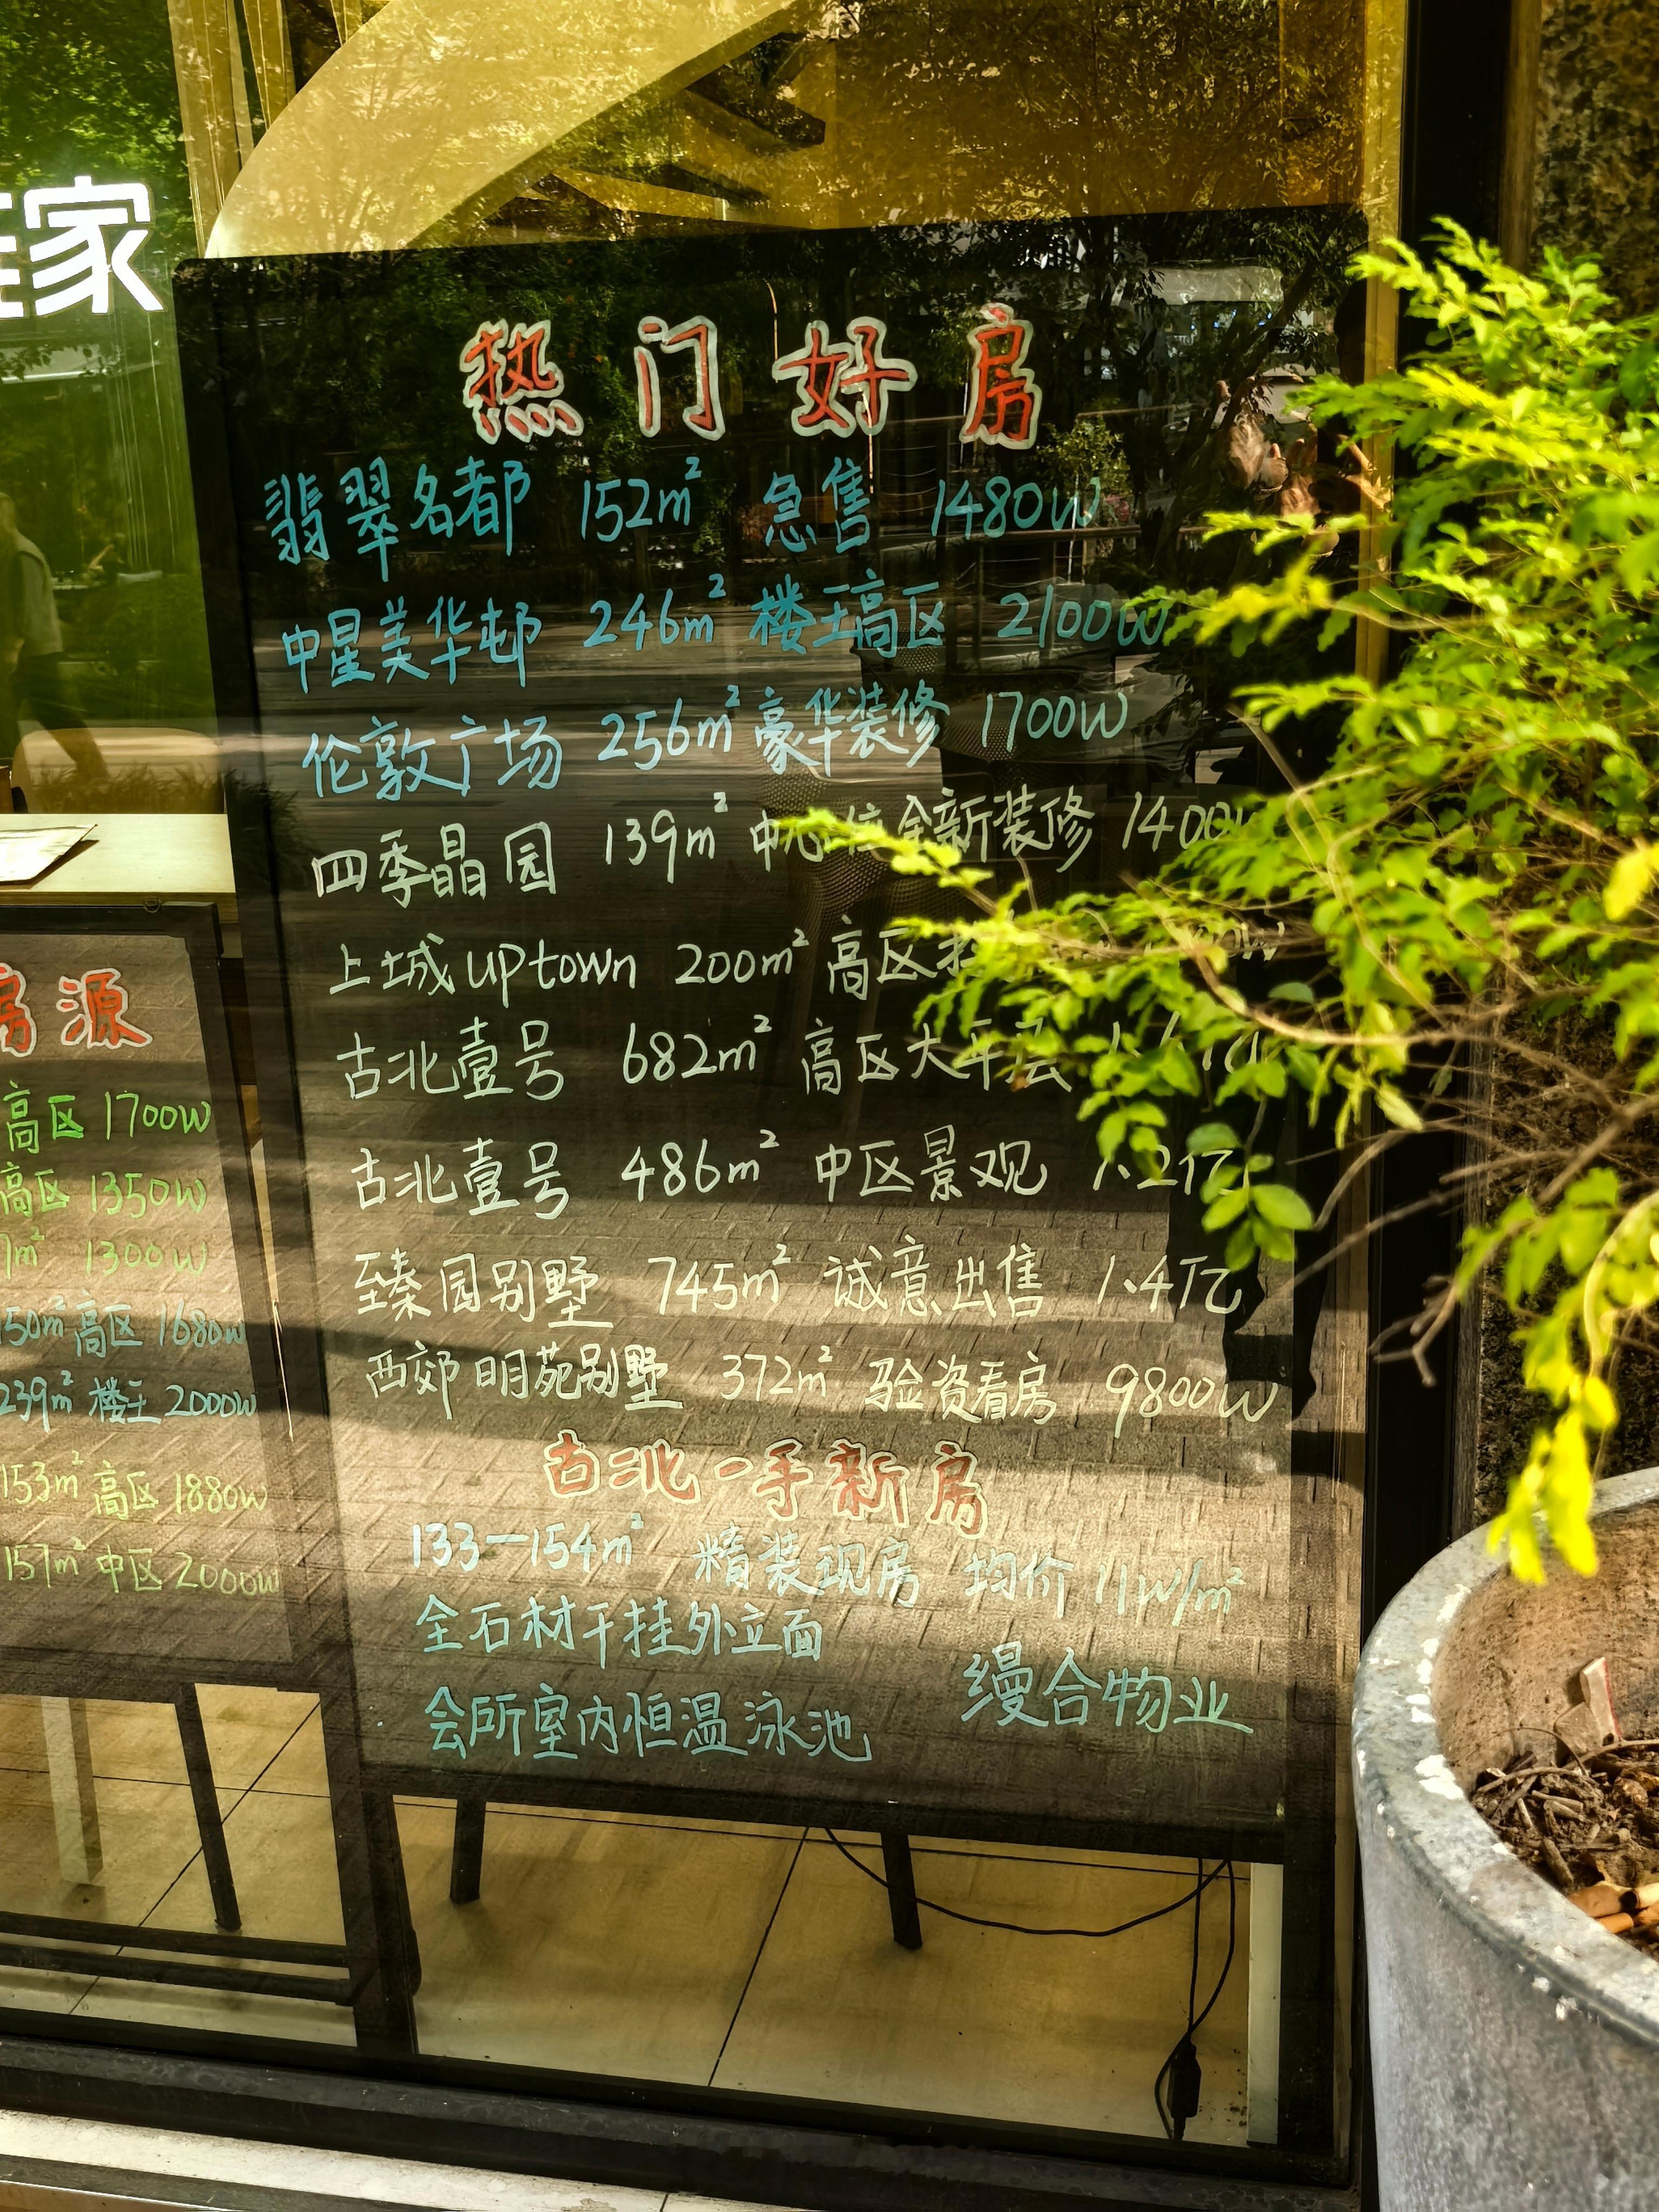 家
热门好房
翡翠名都 152m² 急售 1480W
中星美华邨 246m² 楼王高区 2100W
伦敦广场 256m² 豪华装修 1700W
四季晶园 139m² 中心位全新装修 1400W
上城uptown 200m² 高区
古北壹号 682m² 高区大平层
古北壹号 486m² 中区景观 1.2亿
至臻园别墅 745m² 诚意出售 1.4亿
西郊明苑别墅 372m² 验资看房 9800W
古北一手新房
133—154m² 精装现房 均价 11W/m²
全石材干挂外立面
会所室内恒温泳池
缦合物业
房源
高区 1700W
高区 1350W
m² 1300W
50m² 高区 1680W
239m² 楼王 2000W
153m² 高区 1880W
157m² 中区 2000W